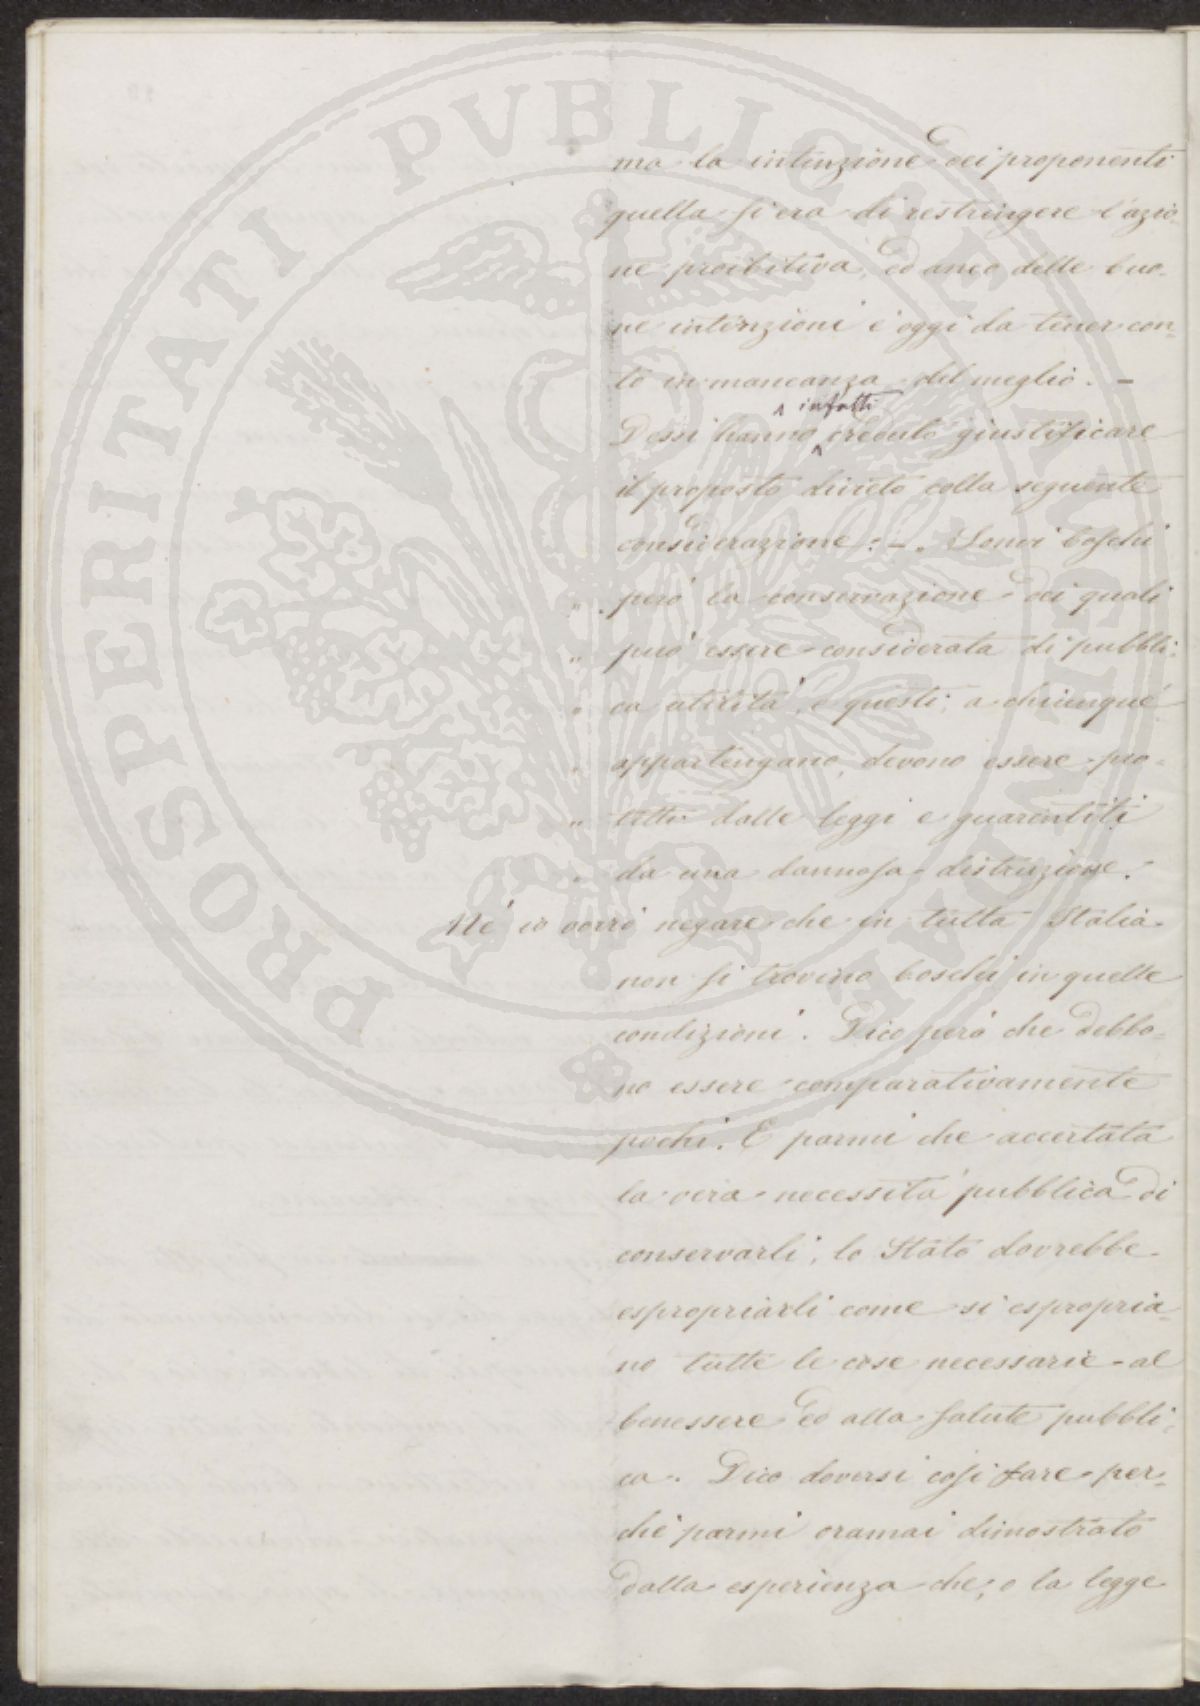 ma la intenzione dei proponenti
quella si era di restringere l'azio-
ne proibitiva, ed anco delle buo-
ne intenzioni è oggi da tener con-
to in mancanza del meglio. –
infatti
Dessi hanno creduto giustificare
il proposto divieto colla seguente
considerazione: – „ Sonvi boschi
„ però la conservazione dei quali
„ può essere considerata di pubbli-
„ ca utilità, e questi, a chiunque
„ appartengano, devono essere pro-
„ tetti dalle leggi e guarentiti
„ da una dannosa distruzione."
Né io vorrò negare che in tutta Italia
non si trovino boschi in quelle
condizioni. Dico però che debbo-
no essere comparativamente
pochi. E parmi che accertata
la vera necessità pubblica di
conservarli, lo Stato dovrebbe
espropriarli come si espropria-
no tutte le cose necessarie al
benessere ed alla salute pubbli-
ca. Dico doversi così fare per-
chè parmi oramai dimostrato
dalla esperienza che, o la legge
PROSPERITATI PVBLICAE AVGENDAE